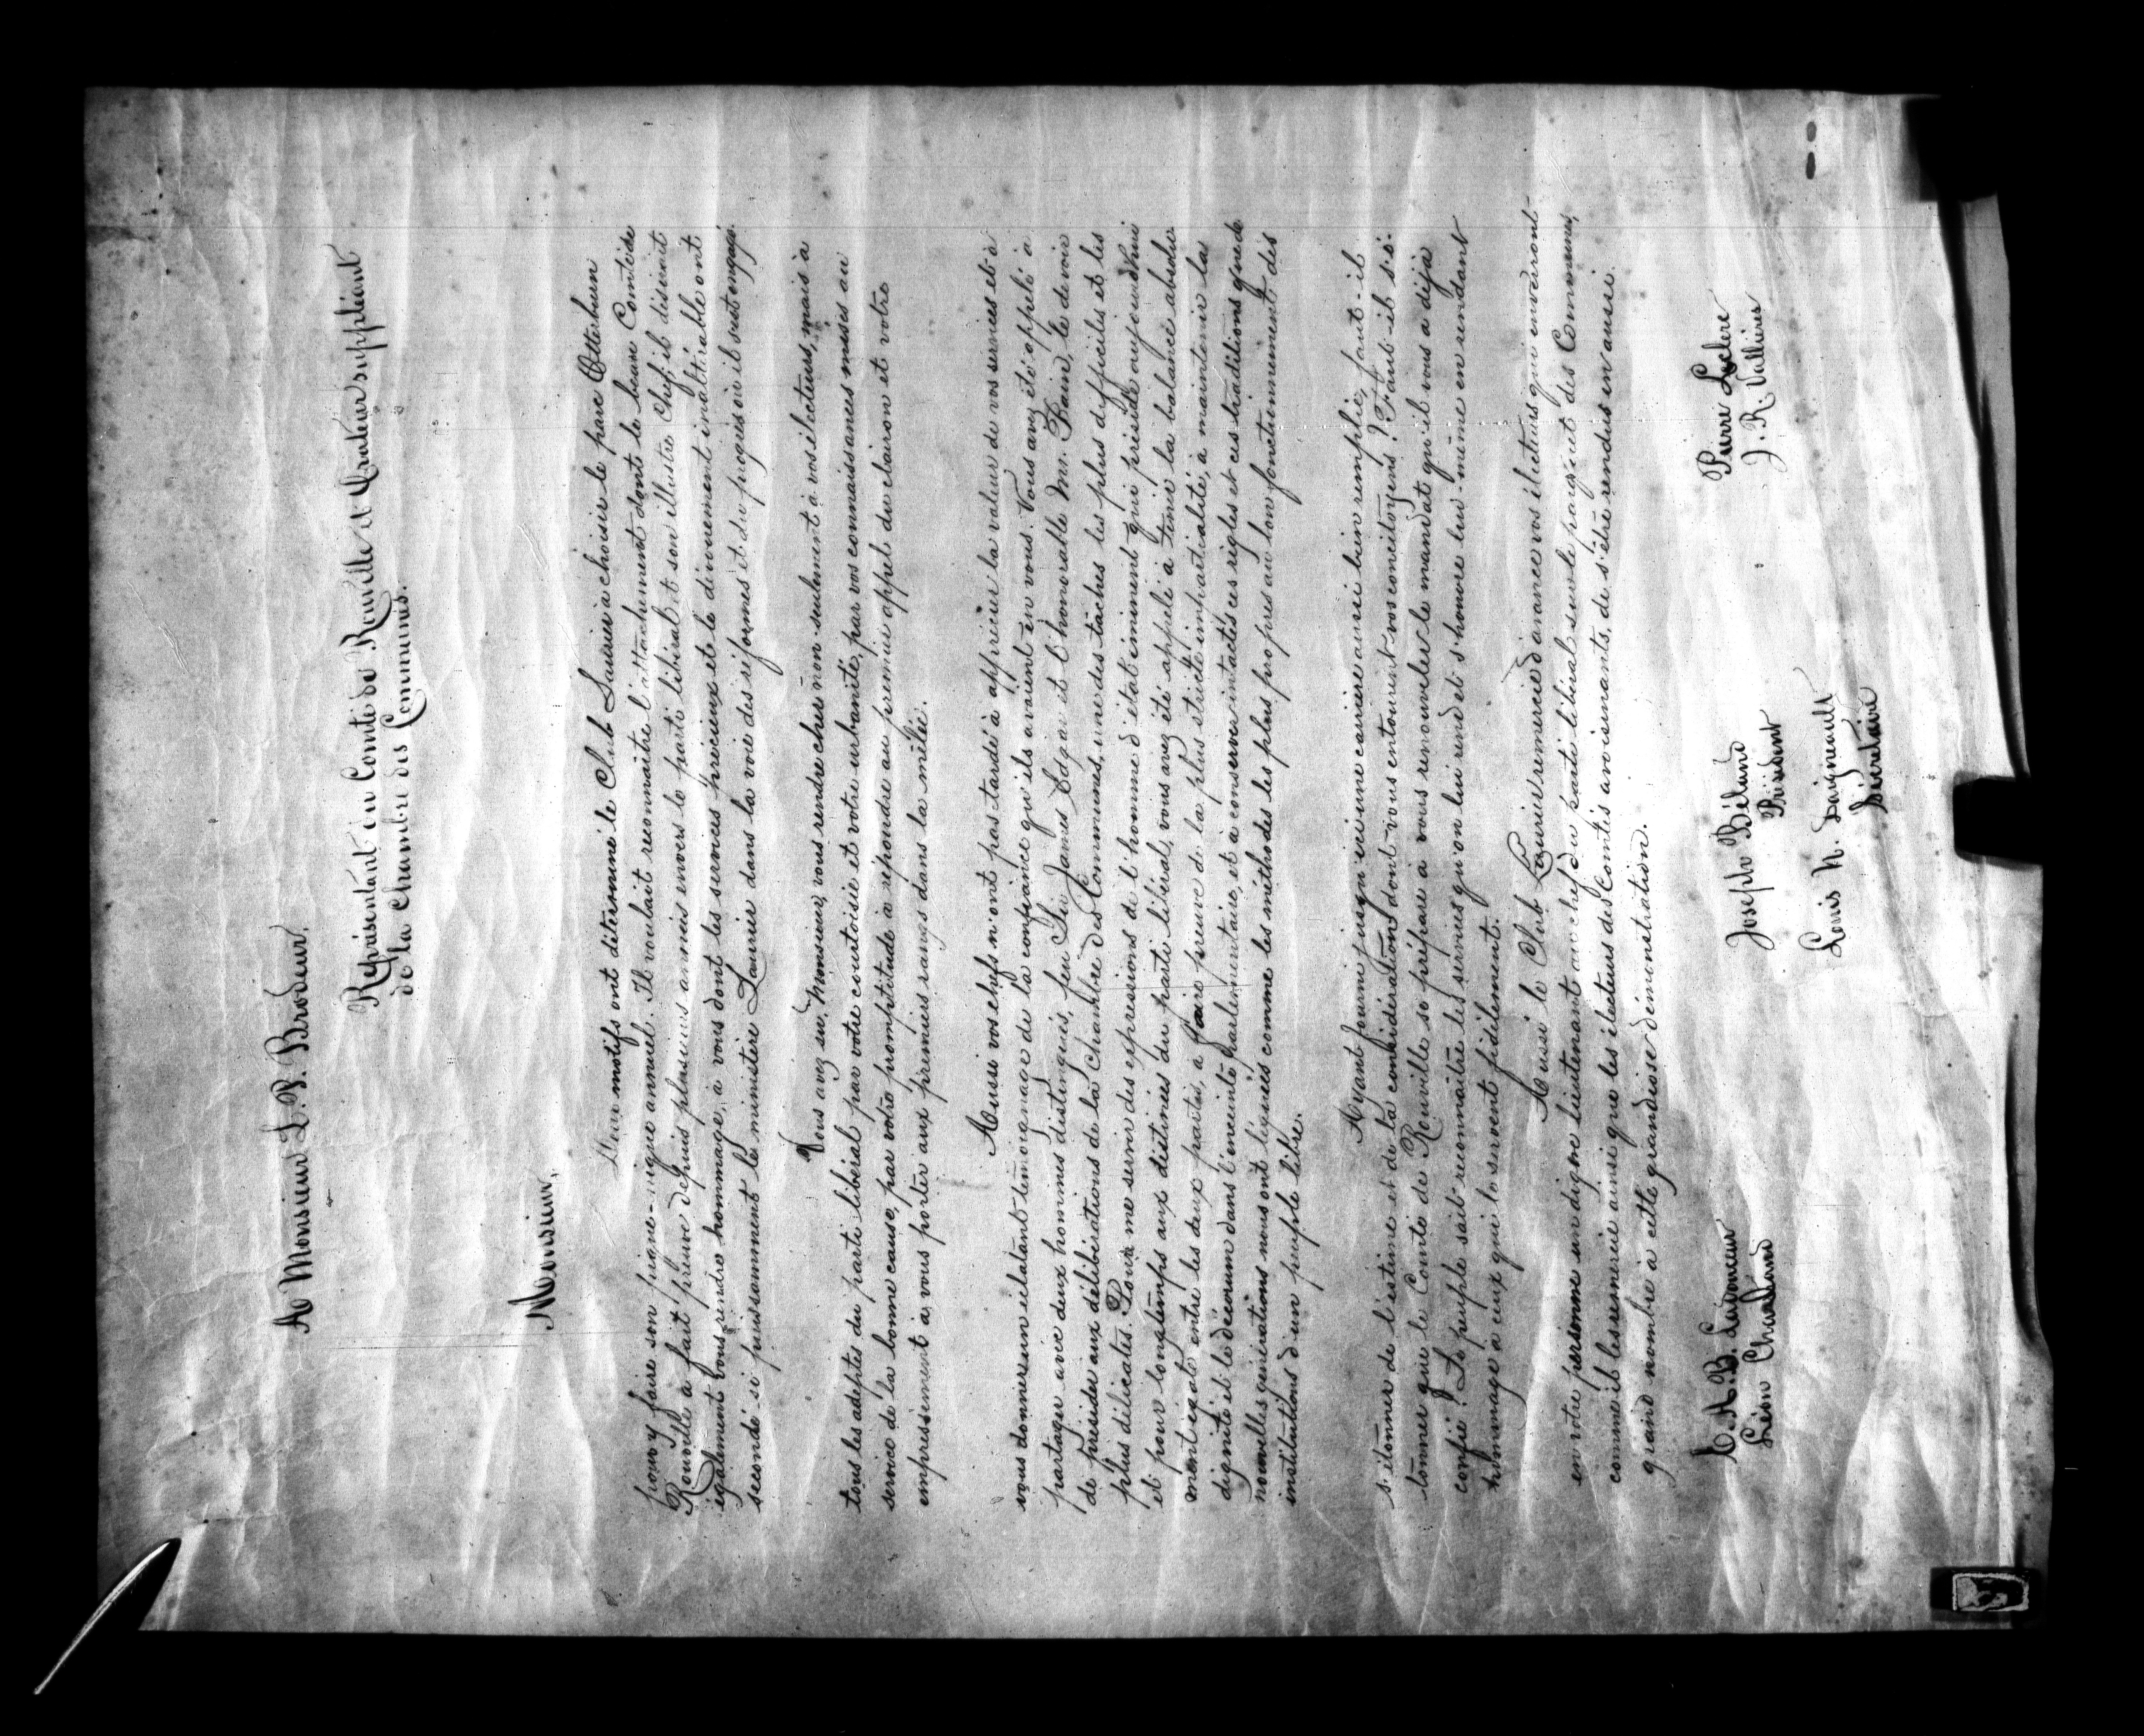 A Monsieur L. P. Brodeur,
Représentant du Comté de Rouville et Orateur suppléant
de la Chambre des Communes.
Monsieur,
Deux motifs ont déterminé le Club Laurier à choisir le parc Otterburn
pour y faire son pique-nique annuel. Il voulait reconnaître l'attachement dont le beau Comté de
Rouville a fait preuve depuis plusieurs années envers le parti libéral et son illustre Chef; il désirait
également vous rendre hommage, à vous dont les services précieux et le dévouement inaltérable ont
secondé si puissamment le ministère Laurier dans la voie des réformes et du progrès où il s'est engagé.
Vous avez su, Monsieur, vous rendre cher non-seulement à vos électeurs, mais à
tous les adeptes du parti libéral par votre courtoisie et votre urbanité, par vos connaissances mises au
service de la bonne cause, par votre promptitude à répondre au premier appel du clairon et votre
empressement à vous porter aux premiers rangs dans la mêlée.
Aussi vos chefs n'ont pas tardé à apprécier la valeur de vos services et à
vous donner un éclatant témoignage de la confiance qu'ils avaient en vous. Vous avez été appelé à
partager avec deux hommes distingués, feu Sir James Edgar et l'honorable M. Bain, le devoir
de présider aux délibérations de la Chambre des Communes, une des tâches les plus difficiles et les
plus délicates. Pour me servir des expressions de l'homme d'état éminent qui préside aujourd'hui
et pour longtemps aux destinées du parti libéral, vous avez été appelé à tenir la balance absolu-
ment égale entre les deux partis, à faire preuve de la plus stricte impartialité, à maintenir la
dignité et le décorum dans l'enceinte parlementaire, et à conserver intactes ces règles et ces traditions que de
nouvelles générations nous ont léguées comme les méthodes les plus propres au bon fonctionnement des
institutions d'un peuple libre.
Ayant fourni jusqu'ici une carrière aussi bien remplie, faut-il
s'étonner de l'estime et de la considération dont vous entourent vos concitoyens? Faut-il s'é-
tonner que le Comté de Rouville se prépare à vous renouveler le mandat qu'il vous a déjà
confié? Le peuple sait reconnaître les services qu'on lui rend et s'honore lui-même en rendant
hommage à ceux qui le servent fidèlement.
Aussi le Club Laurier remercie d'avance vos électeurs qui enverront
en votre personne un digne lieutenant au chef du parti libéral sur le parquet des Communes,
comme il les remercie ainsi que les électeurs des Comtés avoisinants, de s'être rendus en aussi
grand nombre à cette grandiose démonstration.
Pierre Leclerc
J. R. Vallières
Joseph Béland
Président
Louis N. Daigneault
Secrétaire
Léon Chaland